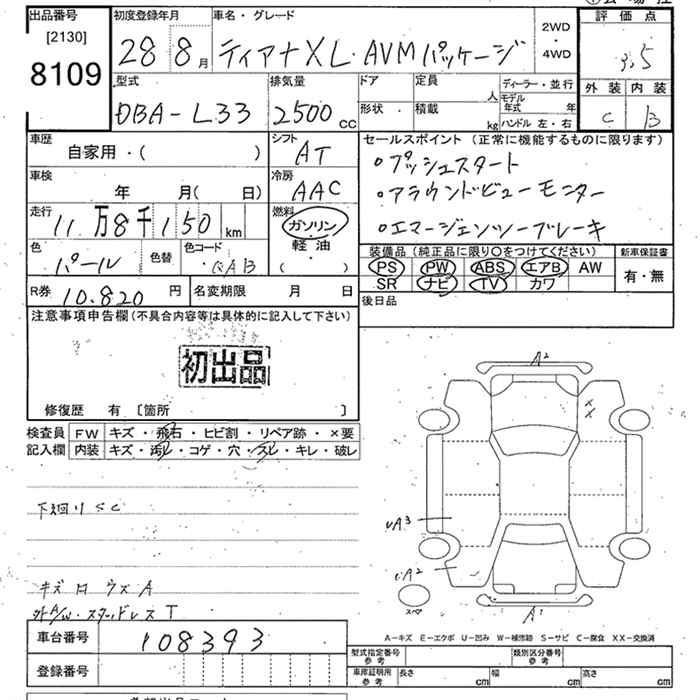 出品番号
[2130]
8109
初度登録年月
28年8月
車名・グレード
ティアナXL・AVMパッケージ
2WD
・
4WD
評価点
3.5
外装 内装
C B
型式
DBA-L33
排気量
2500cc
ドア
形状
定員 人
積載 kg
ディーラー・並行
モデル年式 年
ハンドル 左・右
車歴
自家用・( )
シフト
AT
車検
年 月( 日)
冷房
AAC
走行
11万8千150km
燃料
ガソリン
軽油
( )
色
パール
色替
色コード
QAB
R券
10,820円
名変期限 月 日
セールスポイント (正常に機能するものに限ります)
・プッシュスタート
・アラウンドビューモニター
・エマージェンシーブレーキ
装備品(純正品に限り○をつけてください)
PS PW ABS エアB AW
SR ナビ TV カワ
新車保証書
有・無
後日品
注意事項申告欄(不具合内容等は具体的に記入して下さい)
初出品
修復歴 有 〔箇所 〕
検査員記入欄
FW キズ・飛石・ヒビ割・リペア跡・×要
内装 キズ・汚レ・コゲ・穴・スレ・キレ・破レ
下廻りSC
A2
UA3
UA2
スペア
A1
A-キズ E-エクボ U-凹み W-補修跡 S-サビ C-腐食 XX-交換済
車台番号
108393
登録番号
型式指定番号
参考
類別区分番号
参考
車庫証明用
参考
長さ cm
幅 cm
高さ cm